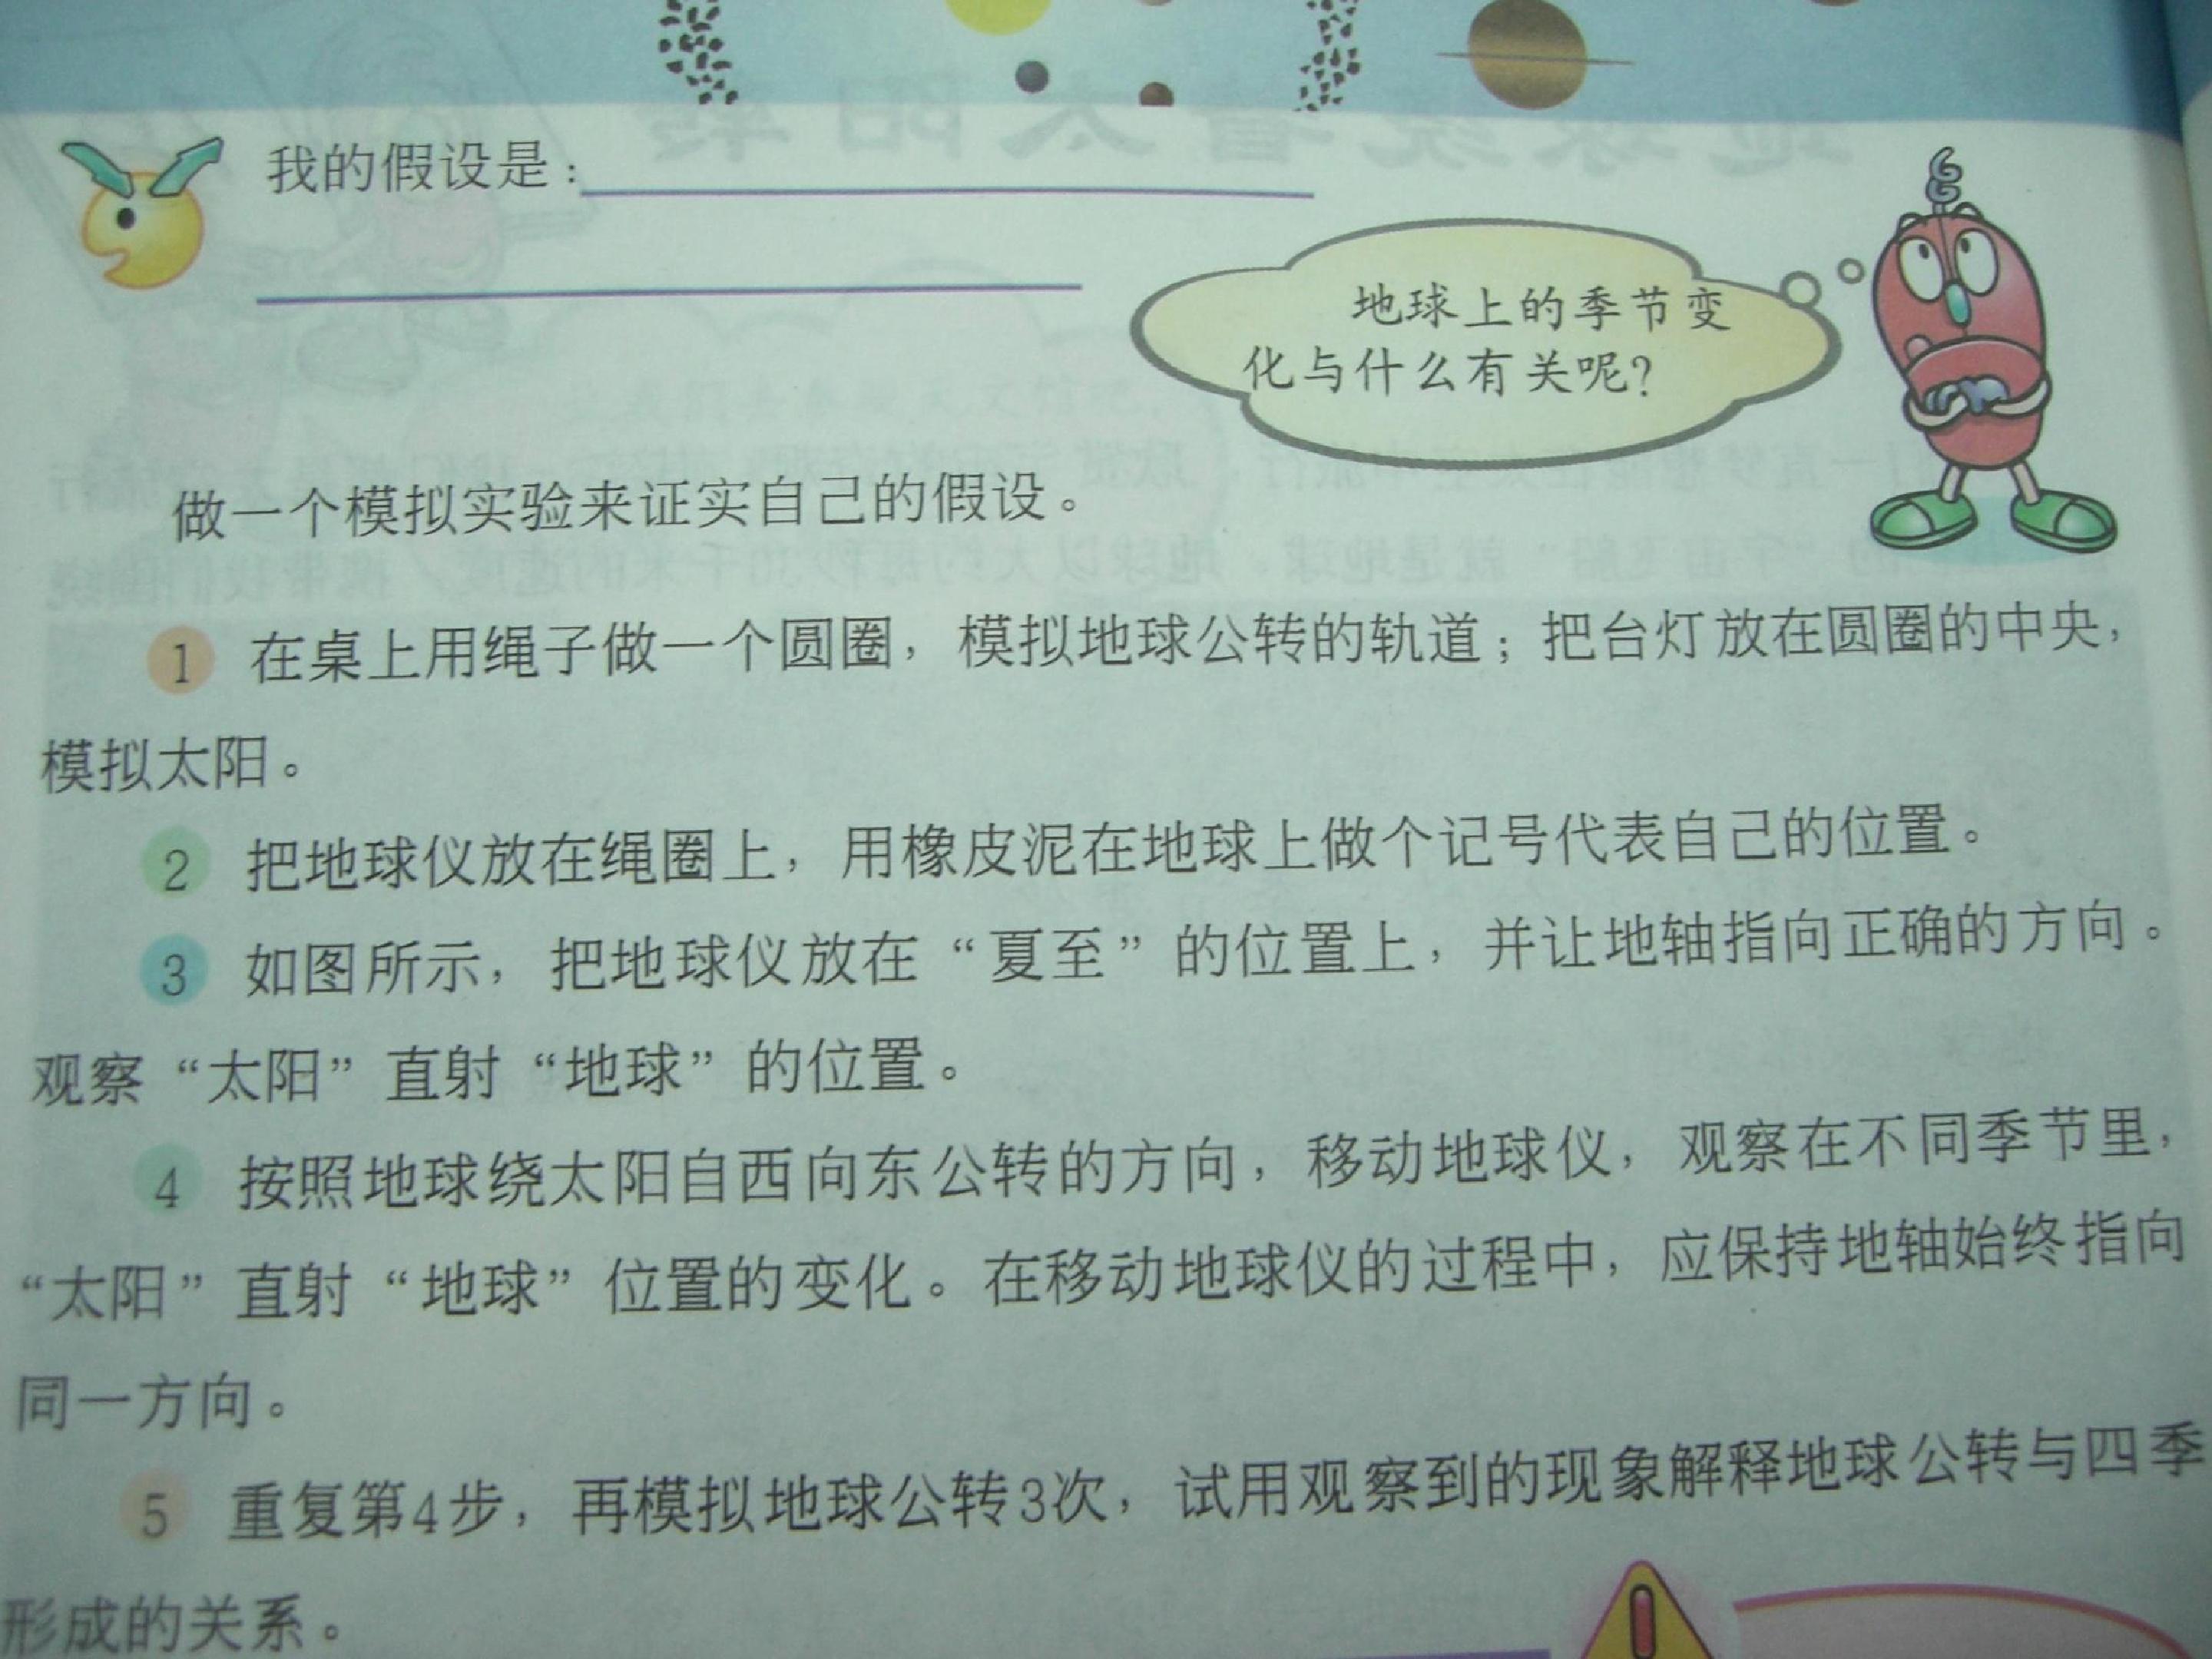 我的假设是：
地球上的季节变
化与什么有关呢？
做一个模拟实验来证实自己的假设。
1 在桌上用绳子做一个圆圈，模拟地球公转的轨道；把台灯放在圆圈的中央，
模拟太阳。
2 把地球仪放在绳圈上，用橡皮泥在地球上做个记号代表自己的位置。
3 如图所示，把地球仪放在“夏至”的位置上，并让地轴指向正确的方向。
观察“太阳”直射“地球”的位置。
4 按照地球绕太阳自西向东公转的方向，移动地球仪，观察在不同季节里，
“太阳”直射“地球”位置的变化。在移动地球仪的过程中，应保持地轴始终指向
同一方向。
5 重复第4步，再模拟地球公转3次，试用观察到的现象解释地球公转与四季
形成的关系。